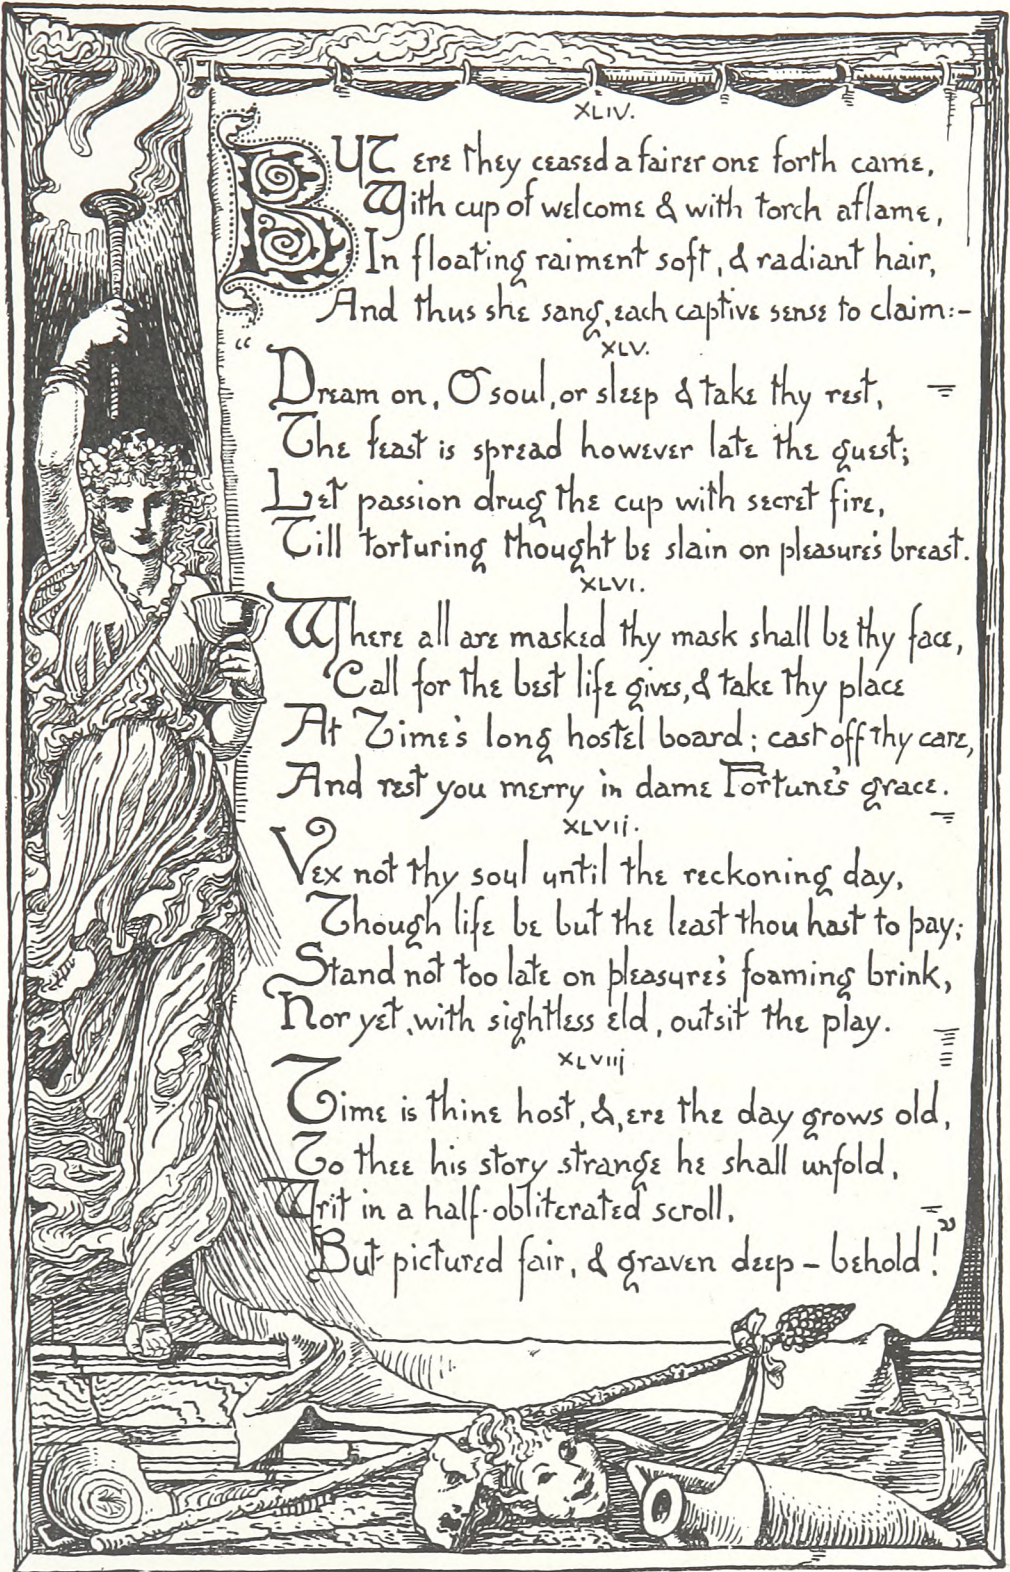 XLIV.
BUT ere they ceased a fairer one forth came,
With cup of welcome & with torch aflame,
In floating raiment soft, & radiant hair,
And thus she sang, each captive sense to claim:-
XLV.
"Dream on, O soul, or sleep & take thy rest,
The feast is spread however late the guest;
Let passion drug the cup with secret fire,
Till torturing thought be slain on pleasure's breast.
XLVI.
Where all are masked thy mask shall be thy face,
Call for the best life gives, & take thy place
At Time's long hostel board; cast off thy care,
And rest you merry in dame Fortune's grace.
XLVIj.
Vex not thy soul until the reckoning day,
Though life be but the least thou hast to pay;
Stand not too late on pleasure's foaming brink,
Nor yet, with sightless eld, outsit the play.
XLVIIj
Time is thine host, &, ere the day grows old,
To thee his story strange he shall unfold,
Writ in a half-obliterated scroll,
But pictured fair, & graven deep – behold!"